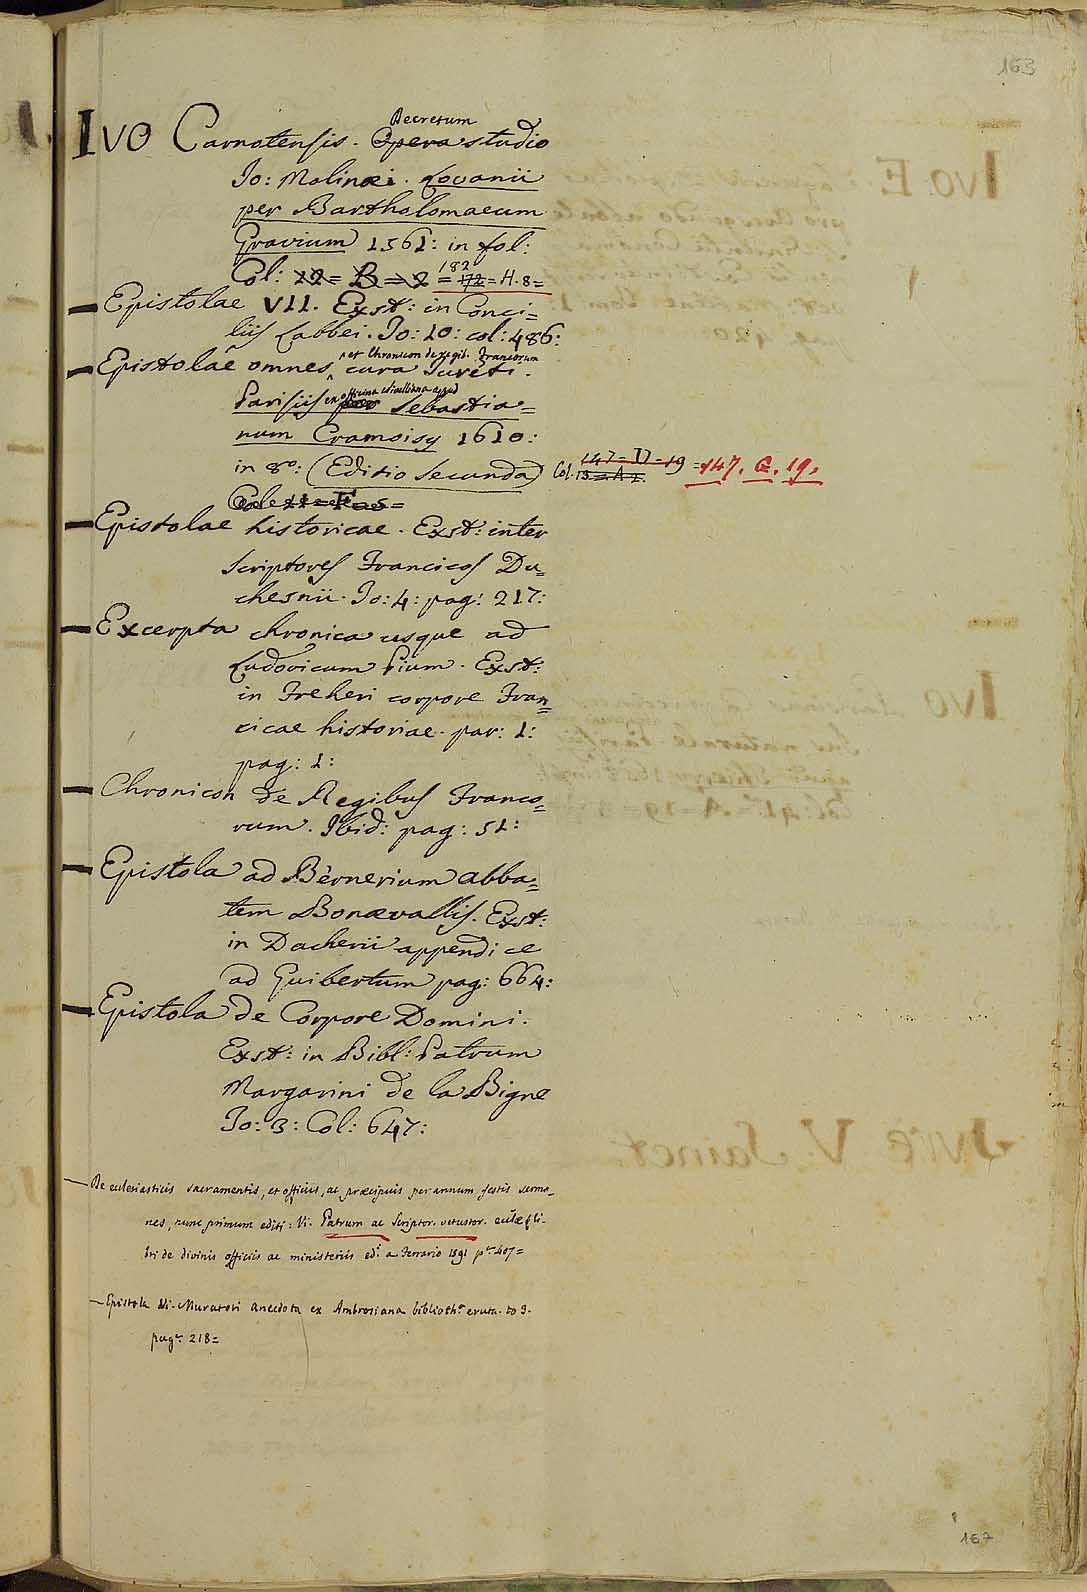 163
Decretum
IVO Carnotensis. Opera studio
Io: Molinæi. Lovanii
per Bartholomaeum
Gravium 1561: in fol:
Col: 22 = B = 2 = 172 = H. 8 =
182
— Epistolae VII. Exst: in Conci=
liis Labbei. To: 10: col: 486:
et Chronicon de regib. Francorum
— Epistolae omnes, cura Jureti.
ex officina nivelliana apud
Parisiis Sebastia=
num Cramoisy 1610:
in 8º: (Editio Secunda) Col. 15 = A 2. 147 = D = 19 = 147. C. 19.
Col: 11 = F = 5 =
— Epistolae historicae. Exst: inter
scriptores Francicos Du=
chesnii. To: 4: pag: 217:
— Excerpta chronica usque ad
Ludovicum Pium. Exst:
in Freheri corpore Fran=
cicae historiae. par: 1:
pag: 1:
— Chronicon de Regibus Franco=
rum. Ibid: pag: 51:
— Epistola ad Bernerium abba=
tem Bonævallis. Exst:
in Dacherii appendice
ad Guibertum pag: 664:
— Epistola de Corpore Domini.
Exst: in Bibl: Patrum
Margarini de la Bigne
To: 3: Col: 647:
— De eclesiasticis sacramentis, et officiis, ac præcipuis per annum festis sermo=
nes, nunc primum editi: Vi. Patrum ac Scriptor. vetustor. li=
bri de divinis officiis ac ministeriis ed. a Ferrario 1591 p. 407=
— Epistola Vi. Muratori anecdota ex Ambrosiana biblioth. eruta. to 3.
pag. 218=
167